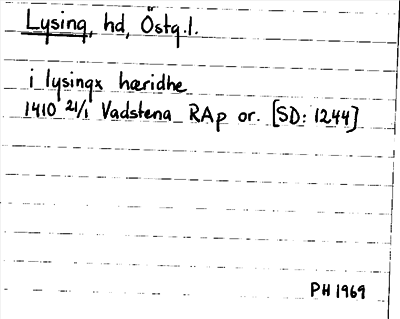 Lysing, hd, Östg.l.
i lysingx hæridhe
1410 21/1 Vadstena RAp or. [SD: 1244]
PH 1969